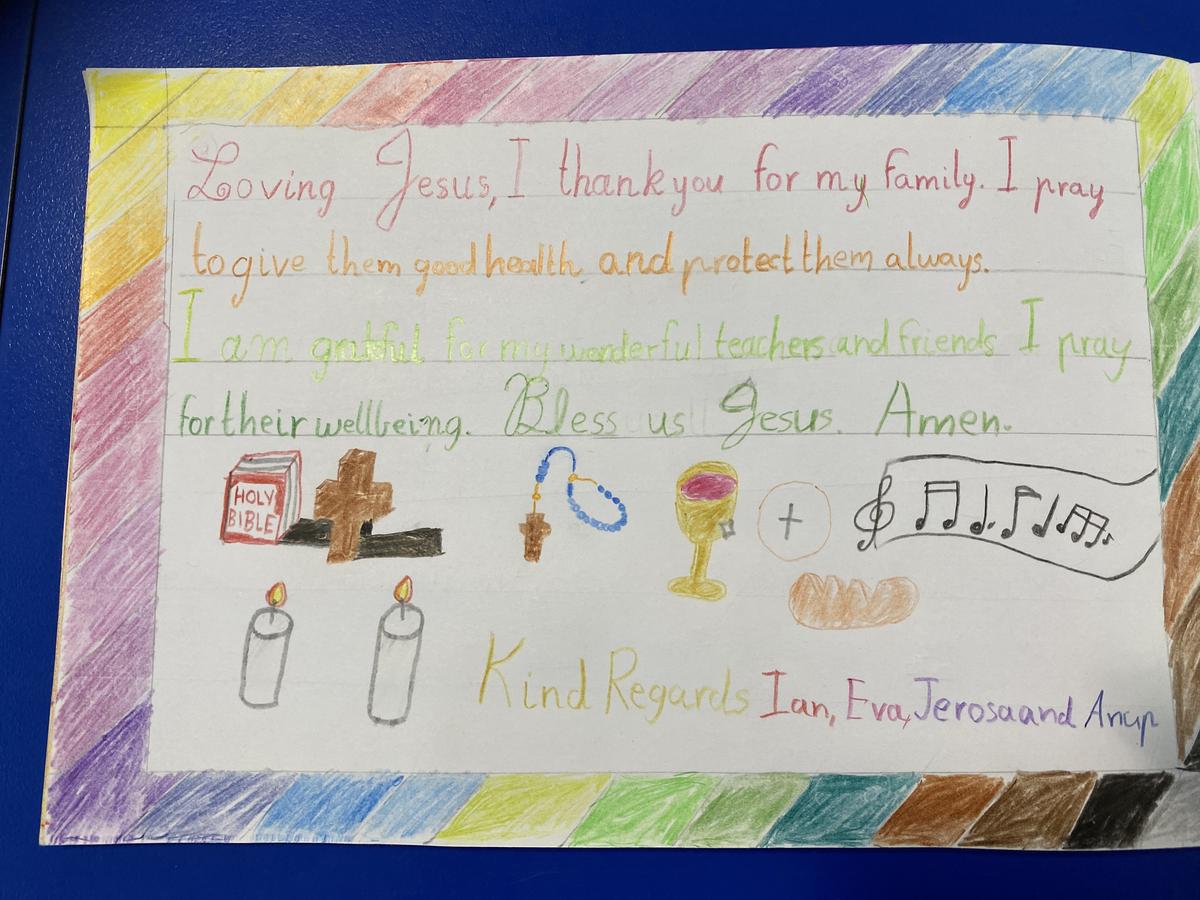 Loving Jesus, I thank you for my family. I pray
to give them good health and protect them always.
I am grateful for my wonderful teachers and friends I pray
for their wellbeing. Bless us Jesus. Amen.
HOLY
BIBLE
Kind Regards Ian, Eva, Jerosa and Anup